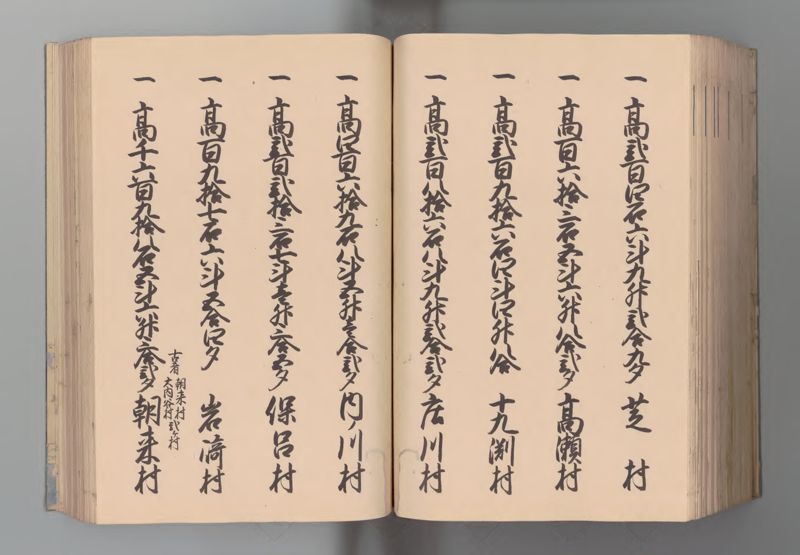 一 高弐百四石六斗九升弐合九夕 芝村
一 高百六拾三石五斗六升八合弐夕 高瀬村
一 高弐百九拾六石四斗四升八合 十九渕村
一 高弐百八拾六石八斗九升弐合弐夕 庄川村
一 高四百六拾九石八斗五升壱合弐夕 内ノ川村
一 高弐百弐拾三石七斗壱升三合五夕 保呂村
一 高百九拾七石六斗五合四夕 岩崎村
古者 朝来村 大内谷村 弐ヶ村
一 高千六百九拾八石五斗六升三合弐夕 朝来村